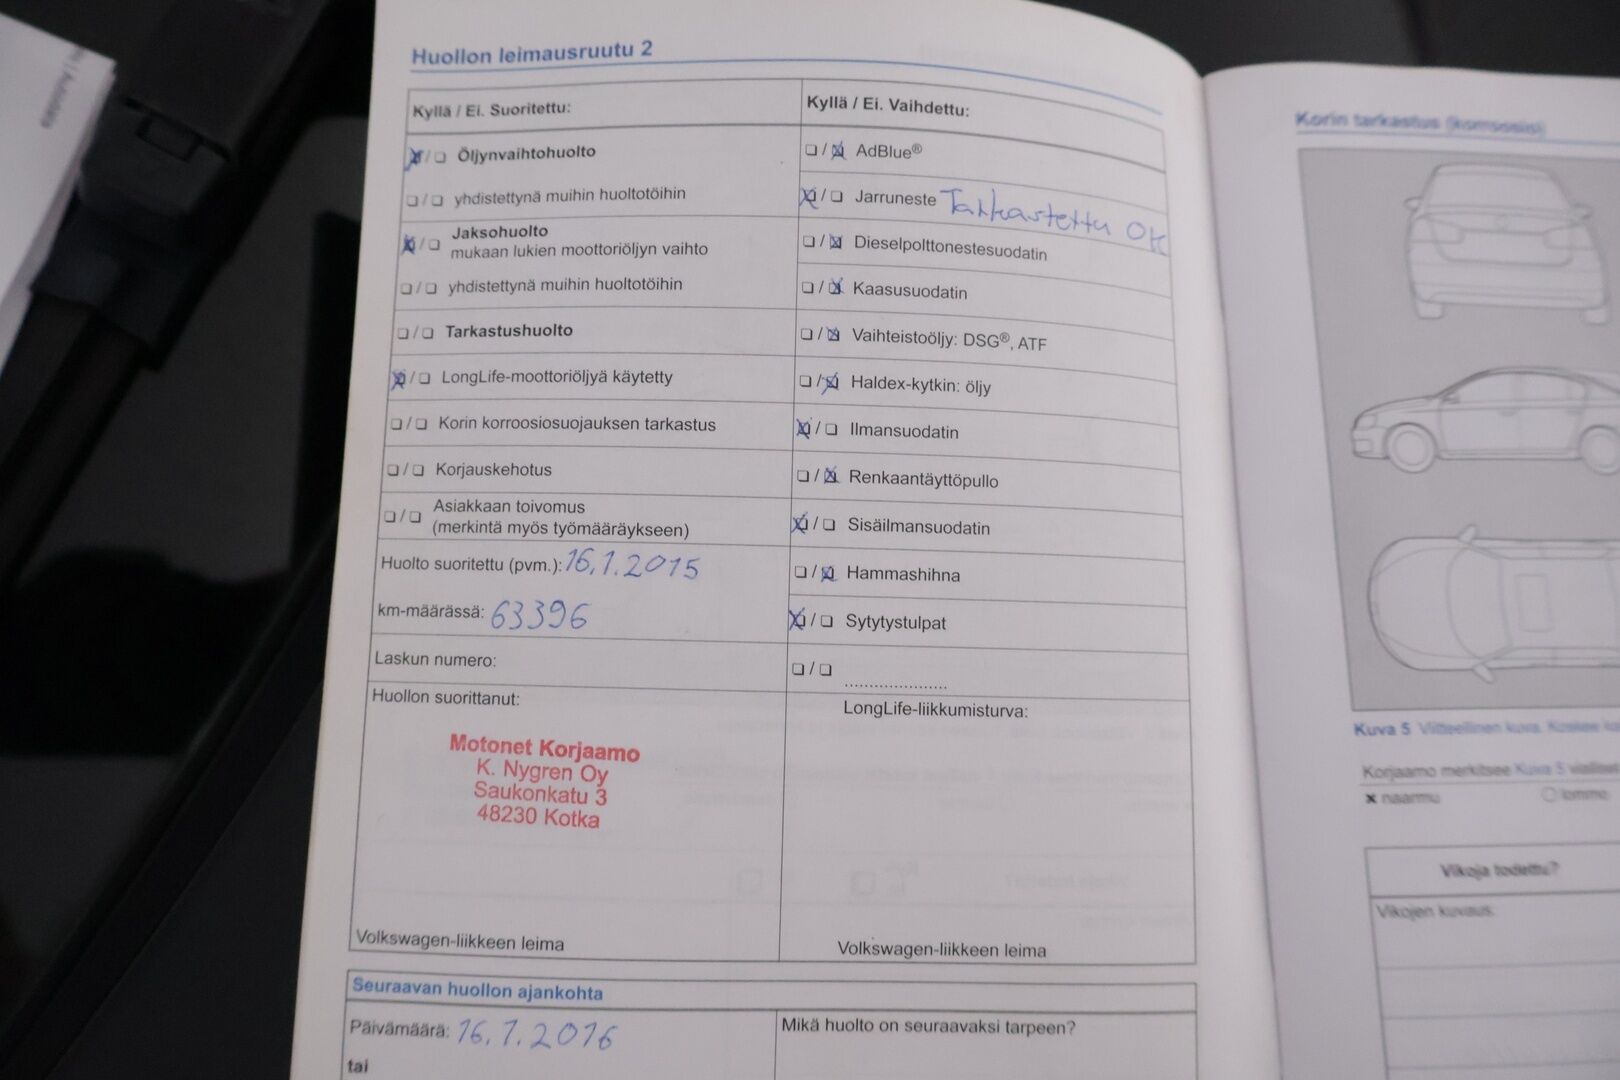 Huollon leimausruutu 2
Kyllä / Ei. Suoritettu:
Öljynvaihtohuolto
yhdistettynä muihin huoltotöihin
Jaksohuolto
mukaan lukien moottoriöljyn vaihto
yhdistettynä muihin huoltotöihin
Tarkastushuolto
LongLife-moottoriöljyä käytetty
Korin korroosiosuojauksen tarkastus
Korjauskehotus
Asiakkaan toivomus
(merkintä myös työmääräykseen)
Huolto suoritettu (pvm.): 16.1.2015
km-määrässä: 63396
Laskun numero:
Huollon suorittanut:
Motonet Korjaamo
K. Nygren Oy
Saukonkatu 3
48230 Kotka
Volkswagen-liikkeen leima
Kyllä / Ei. Vaihdettu:
AdBlue®
Jarruneste Tarkastettu OK
Dieselpolttonestesuodatin
Kaasusuodatin
Vaihteistoöljy: DSG®, ATF
Haldex-kytkin: öljy
Ilmansuodatin
Renkaantäyttöpullo
Sisäilmansuodatin
Hammashihna
Sytytystulpat
....................
LongLife-liikkumisturva:
Volkswagen-liikkeen leima
Seuraavan huollon ajankohta
Päivämäärä: 16.1.2016
tai
Mikä huolto on seuraavaksi tarpeen?
Korin tarkastus (korroosio)
Kuva 5 Viitteellinen kuva. Koskee
Korjaamo merkitsee Kuva 5
x naarmu
lommo
Vikoja todettu?
Vikojen kuvaus: